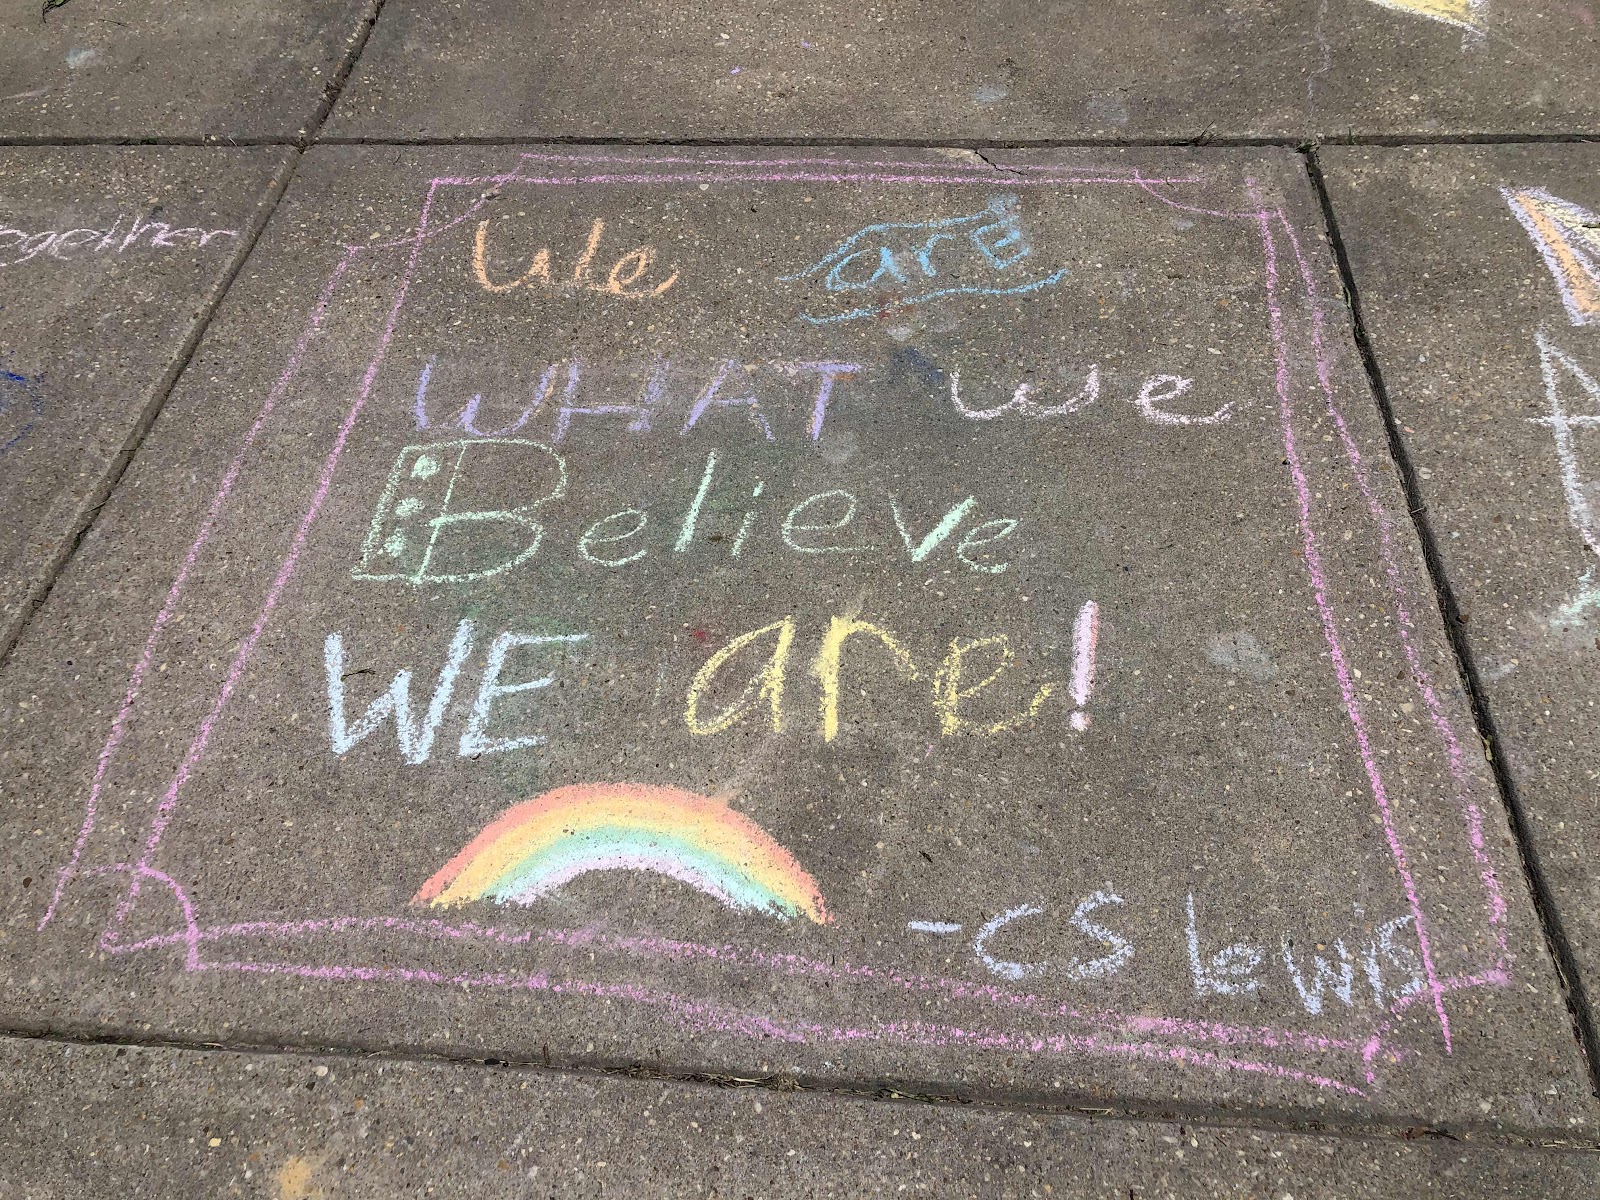 We arE
WHAT we
Believe
WE are!
-CS Lewis